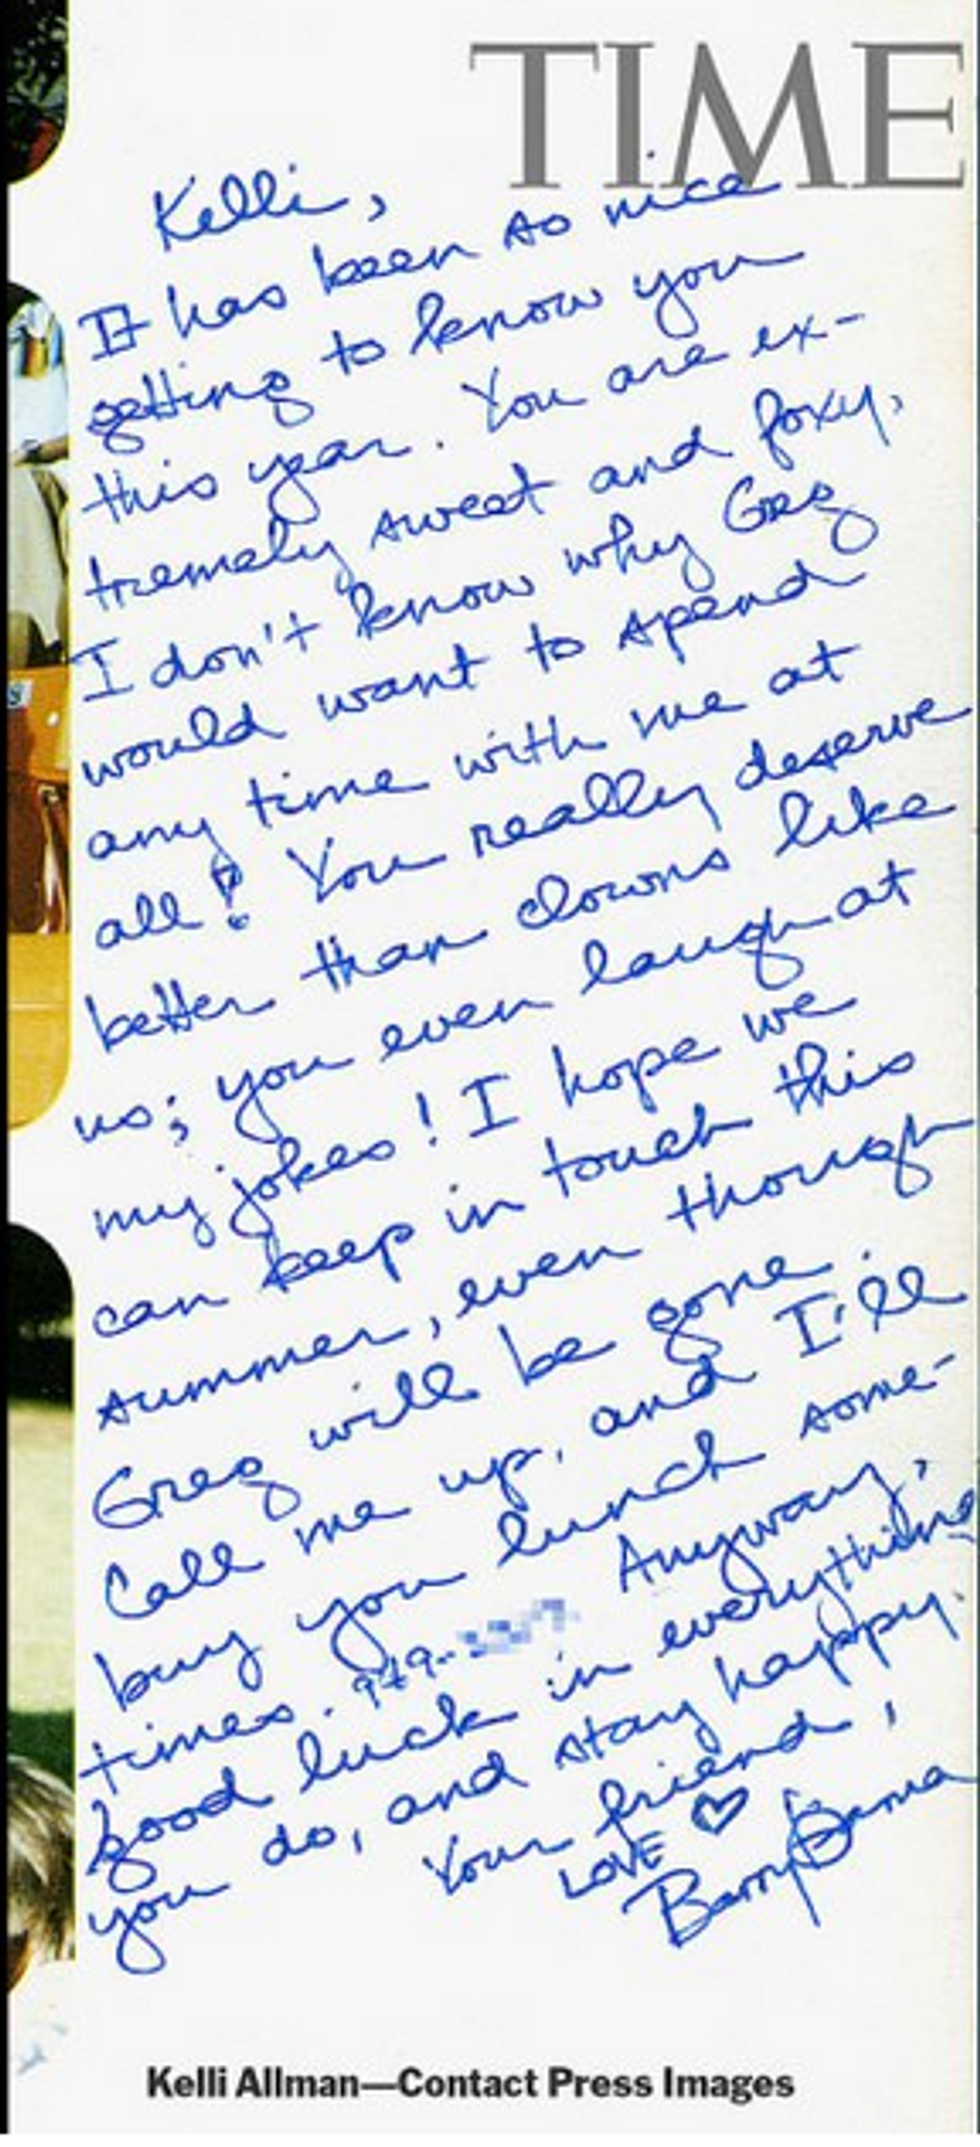 TIME
Kelli,
It has been so nice
getting to know you
this year. You are ex-
tremely sweet and foxy,
I don't know why Greg
would want to spend
any time with me at
all! You really deserve
better than clowns like
us; you even laugh at
my jokes! I hope we
can keep in touch this
summer, even though
Greg will be gone.
Call me up, and I'll
buy you lunch some-
times. 949- Anyway,
good luck in everything
you do, and stay happy.
Your friend,
LOVE
Barry Obama
Kelli Allman—Contact Press Images